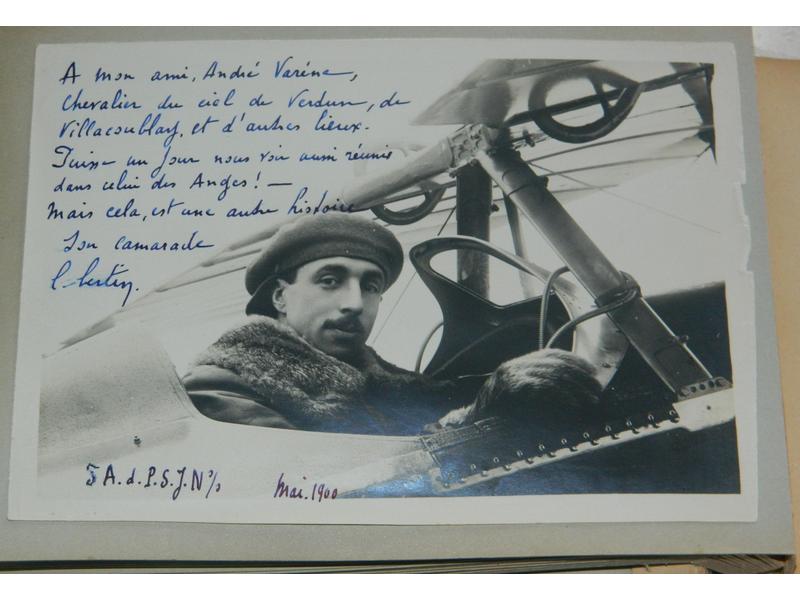 A mon ami, André Varène,
Chevalier du ciel de Verdun, de
Villacoublay, et d'autres lieux.
Puisse un jour nous voir aussi réunis
dans celui des Anges! —
Mais cela, est une autre histoire
Son camarade
A.d.P.S.J.N%
Mai.1900